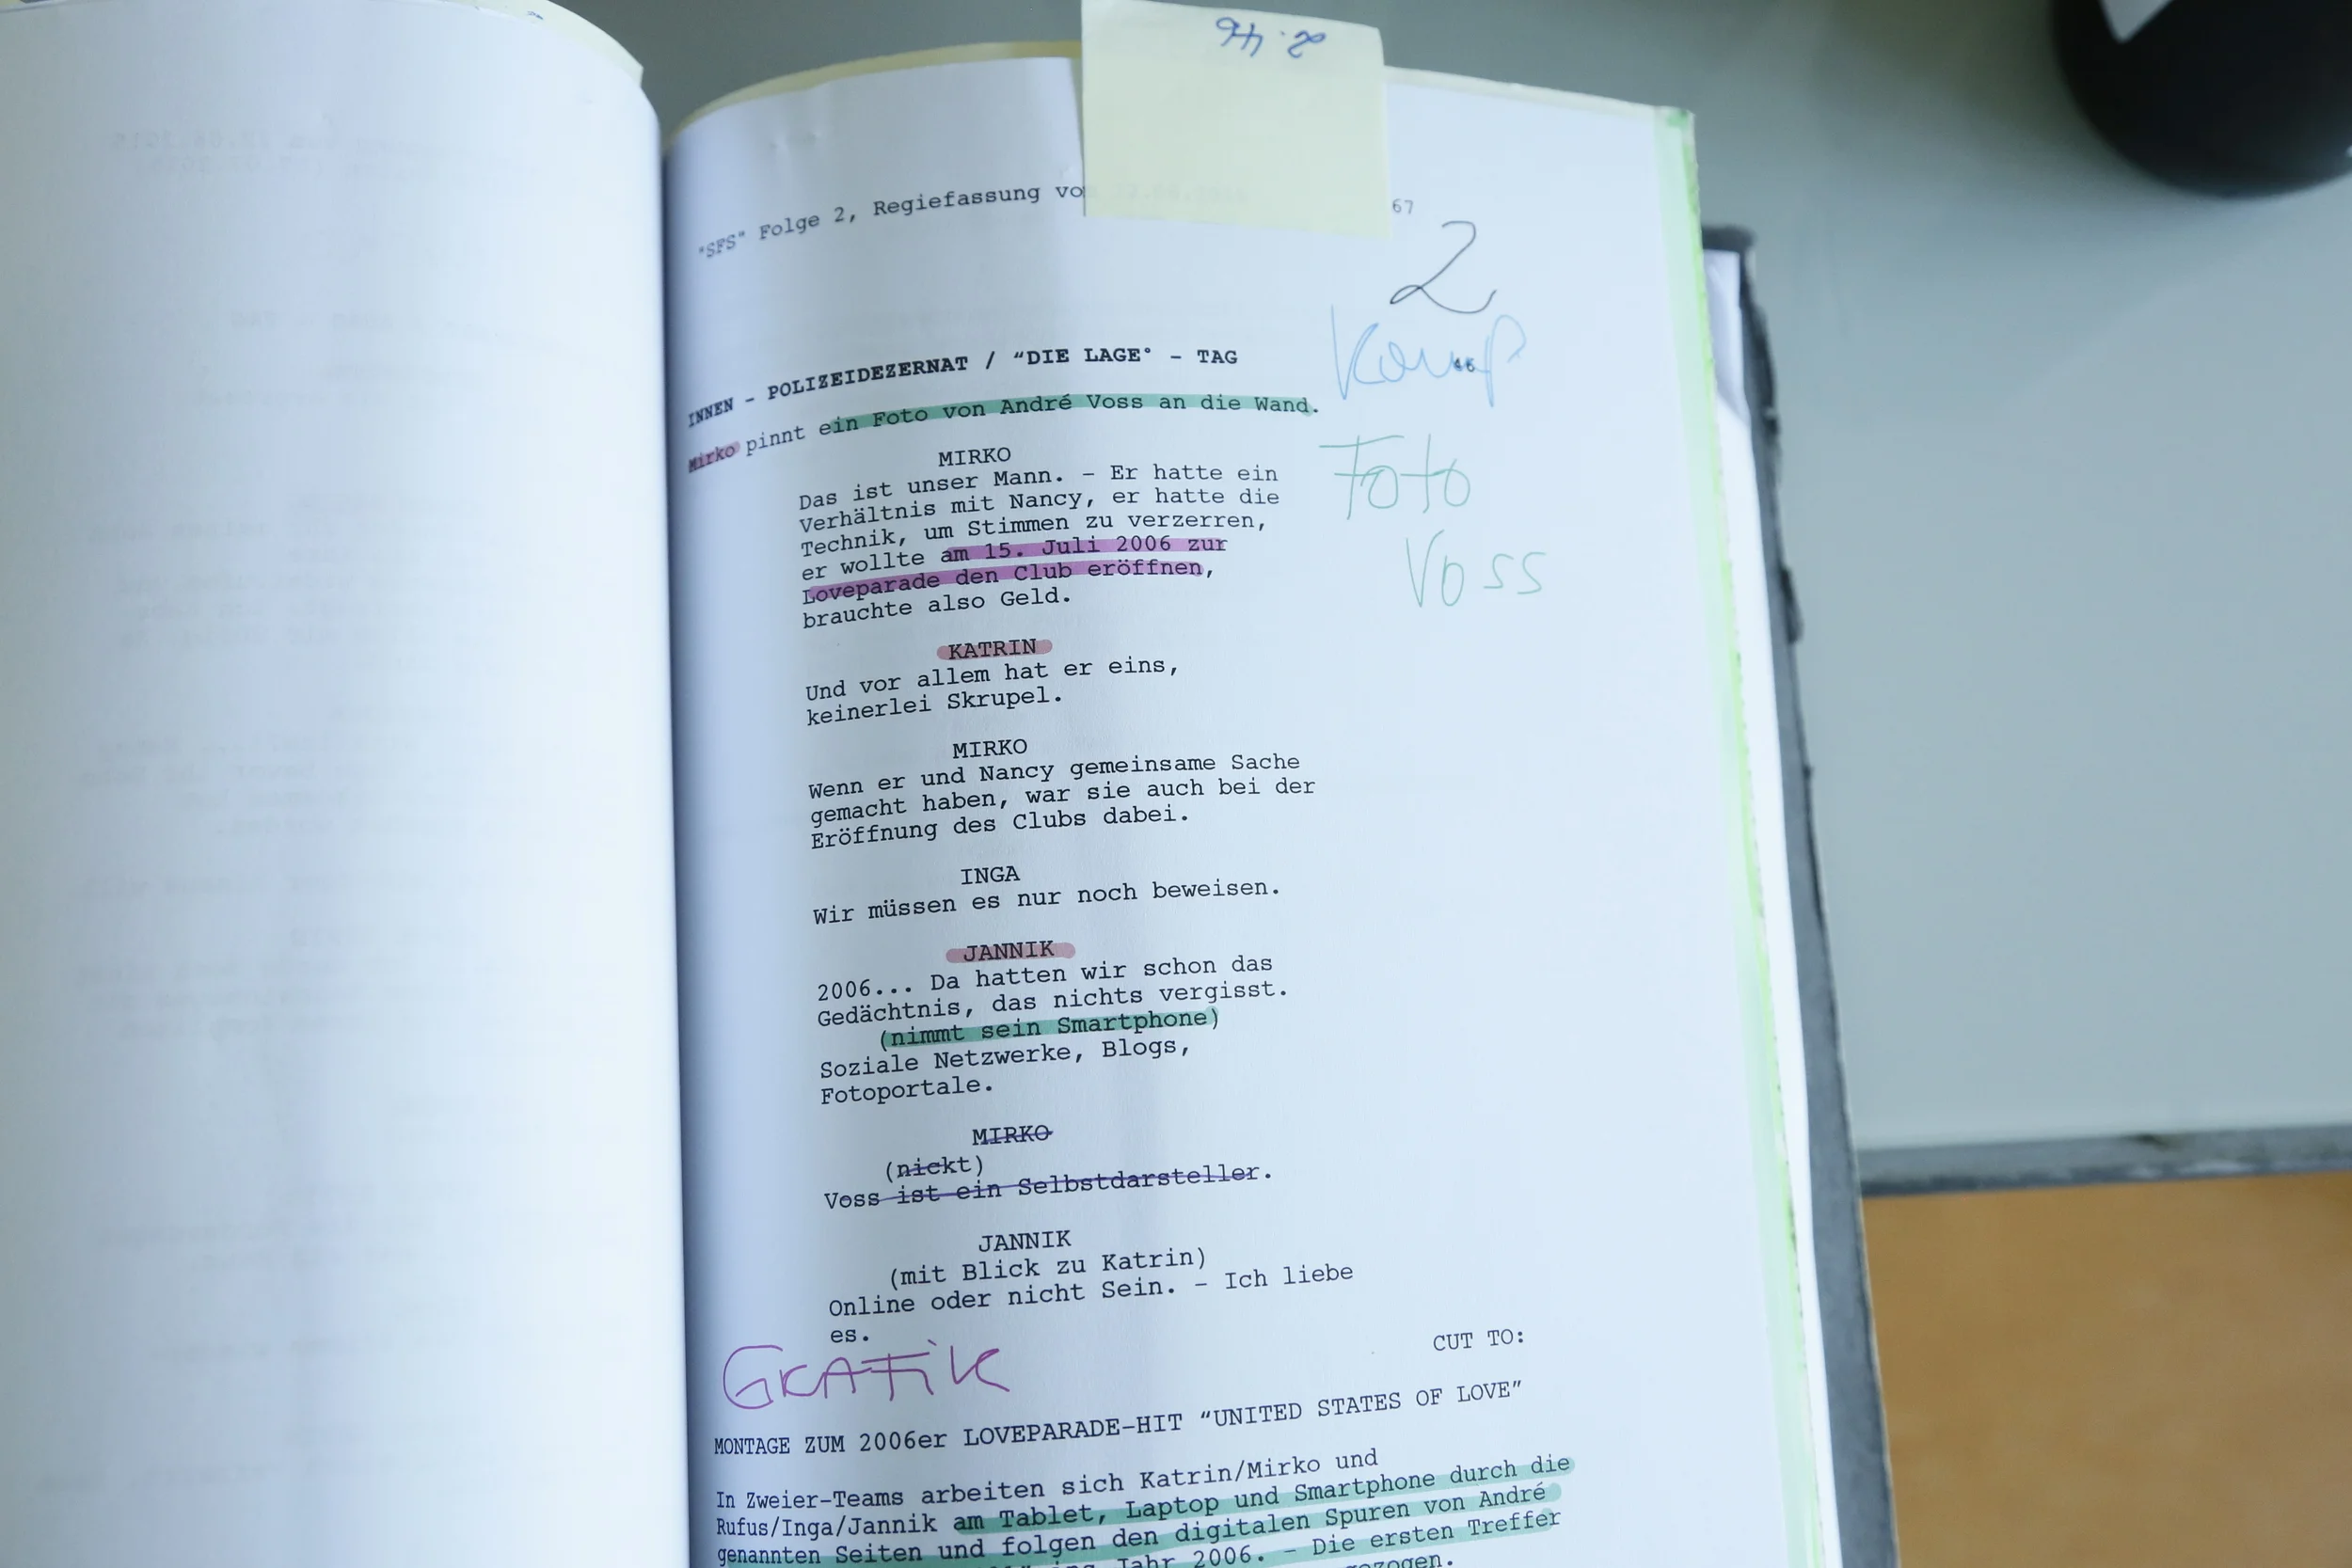 2.46
"SFS" Folge 2, Regiefassung vo
67
2
Komp
INNEN - POLIZEIDEZERNAT / "DIE LAGE" - TAG
46
Mirko pinnt ein Foto von André Voss an die Wand.
Foto
Voss
MIRKO
Das ist unser Mann. - Er hatte ein
Verhältnis mit Nancy, er hatte die
Technik, um Stimmen zu verzerren,
er wollte am 15. Juli 2006 zur
Loveparade den Club eröffnen,
brauchte also Geld.
KATRIN
Und vor allem hat er eins,
keinerlei Skrupel.
MIRKO
Wenn er und Nancy gemeinsame Sache
gemacht haben, war sie auch bei der
Eröffnung des Clubs dabei.
INGA
Wir müssen es nur noch beweisen.
JANNIK
2006... Da hatten wir schon das
Gedächtnis, das nichts vergisst.
(nimmt sein Smartphone)
Soziale Netzwerke, Blogs,
Fotoportale.
MIRKO
(nickt)
Voss ist ein Selbstdarsteller.
JANNIK
(mit Blick zu Katrin)
Online oder nicht Sein. - Ich liebe
es.
CUT TO:
GRAFiK
MONTAGE ZUM 2006er LOVEPARADE-HIT "UNITED STATES OF LOVE"
In Zweier-Teams arbeiten sich Katrin/Mirko und
Rufus/Inga/Jannik am Tablet, Laptop und Smartphone durch die
genannten Seiten und folgen den digitalen Spuren von André
Jahr 2006. - Die ersten Treffer